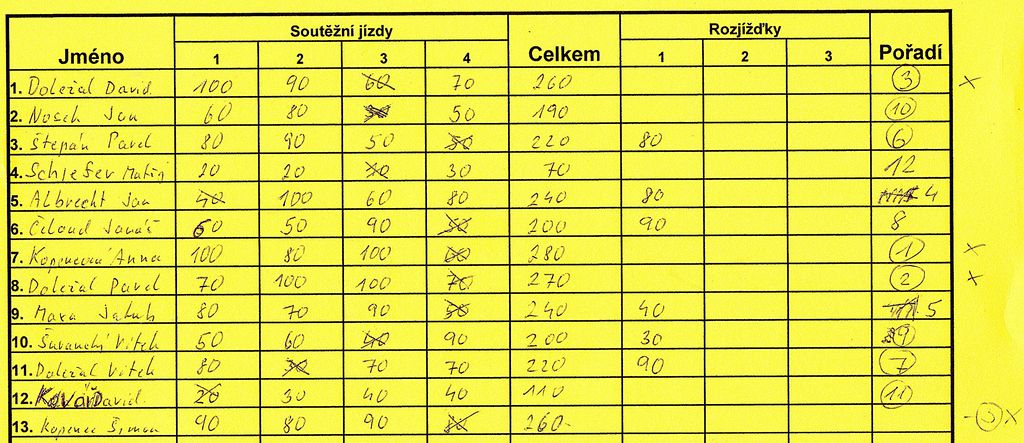 Jméno Soutěžní jízdy Celkem Rozjížďky Pořadí
1 2 3 4 1 2 3
1. Doležal David 100 90 60 70 260 3 x
2. Nosek Jan 60 80 50 190 10
3. Štěpán Pavel 80 90 50 50 220 80 6
4. Schiefer Matěj 20 20 30 70 12
5. Albrecht Jan 40 100 60 80 240 80 4
6. Jonáš 60 50 90 50 200 90 8
7. Kopencová Anna 100 80 100 280 1 x
8. Doležal Pavel 70 100 100 70 270 2 x
9. Maxa Jakub 80 70 90 50 240 40 5
10. Vítek 50 60 40 90 200 30 9
11. Doležal Vítek 80 30 70 70 220 90 7
12. Kovář David 20 30 40 40 110 11
13. Kopenec Šimon 90 80 90 260 x